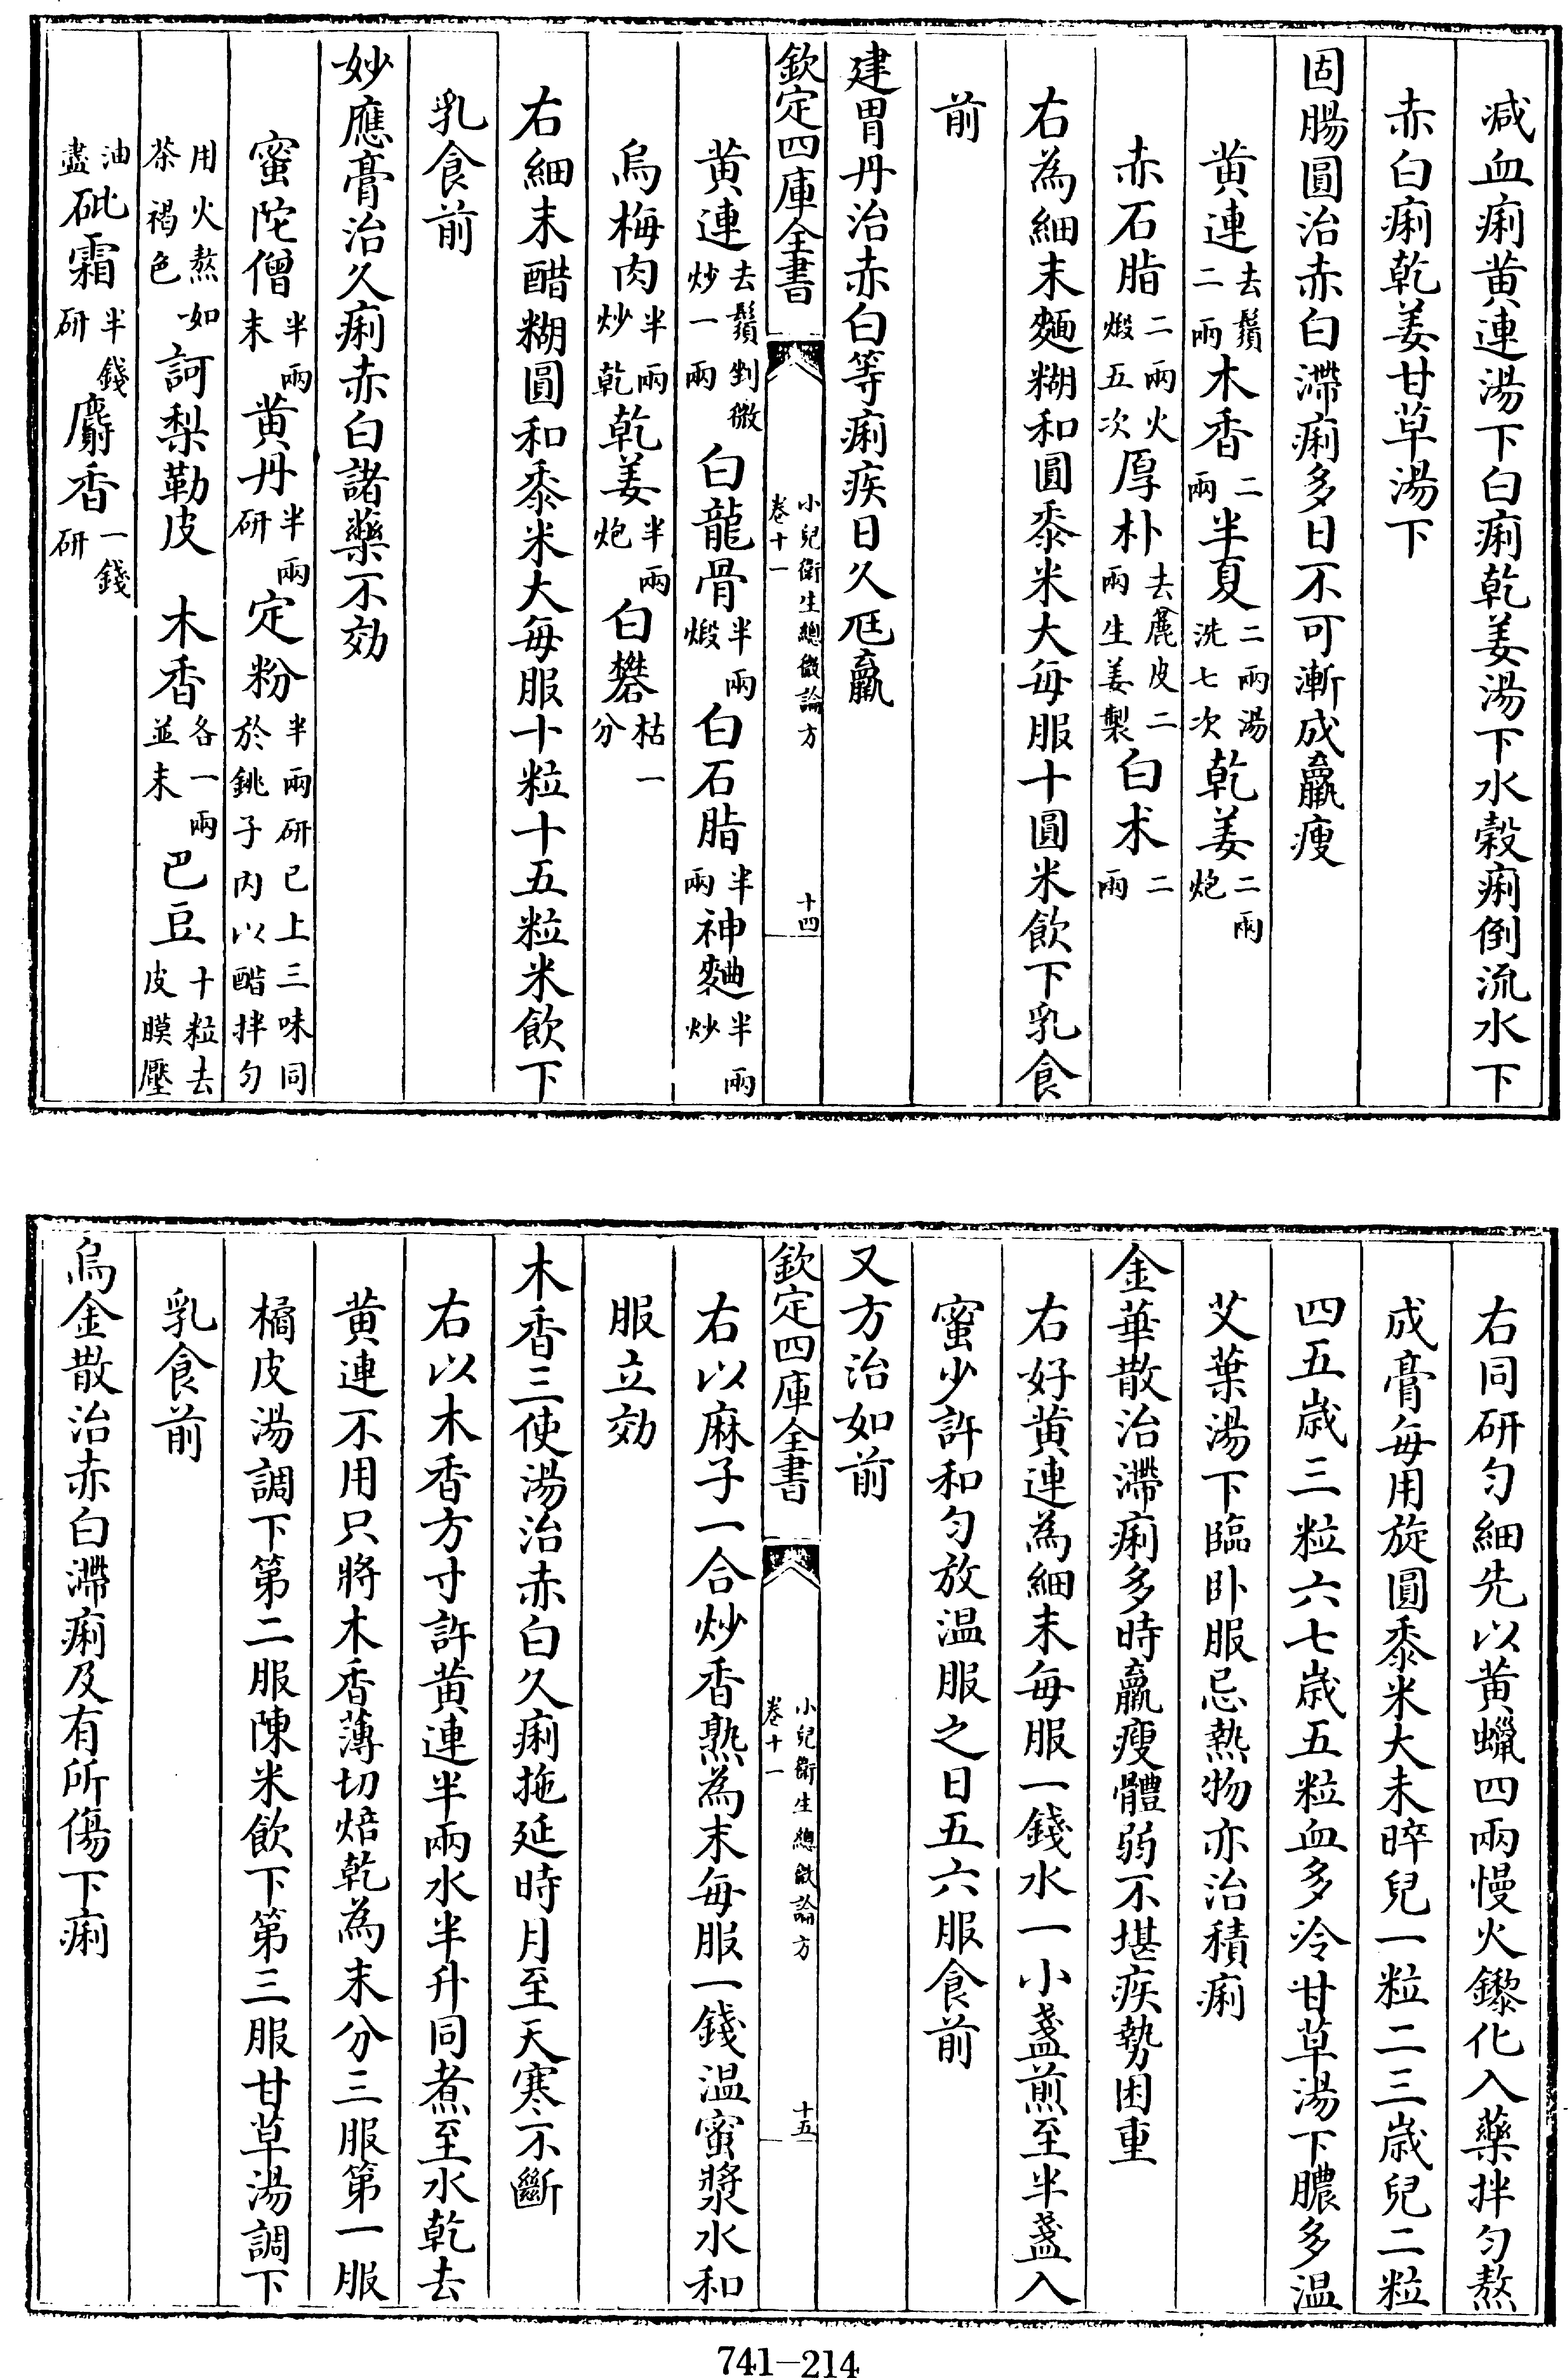 减血痢黄連湯下白痢乾姜湯下水榖痢倒流水下
赤白痢乾姜甘草湯下
固腸圓治赤白滯痢多日不可漸成羸瘦
黄連去鬚二兩木香二兩半夏二兩湯洗七次乾姜二兩炮
赤石脂二兩火煅五次厚朴去麄皮二兩生姜製白术二兩
右為細末麵糊和圓黍米大每服十圓米飲下乳食
前
建胃丹治赤白等痢疾日久尫羸
欽定四庫全書
小兒衛生總微論方
卷十一
十四
黄連去鬚剉微炒一兩白龍骨半兩煅白石脂半兩神麯半兩炒
烏梅肉半兩炒乾乾姜半兩炮白礬枯一分
右細末醋糊圓和黍米大每服十粒十五粒米飲下
乳食前
妙應膏治久痢赤白諸藥不効
蜜陀僧半兩末黄丹半兩研定粉半兩研已上三味同於銚子内以醋拌勻
用火熬如茶褐色訶梨勒皮 木香各一兩並末巴豆十粒去皮膜壓
油盡砒霜半錢研麝香一錢研
右同研勻細先以黄蠟四兩慢火鎔化入藥拌勻熬
成膏每用旋圓黍米大未晬兒一粒二三歲兒二粒
四五歲三粒六七歲五粒血多冷甘草湯下膿多温
艾葉湯下臨卧服忌熱物亦治積痢
金華散治滯痢多時羸瘦體弱不堪疾勢困重
右好黄連為細末每服一錢水一小盞煎至半盞入
蜜少許和勻放温服之日五六服食前
又方治如前
欽定四庫全書
小兒衛生總微論方
卷十一
十五
右以麻子一合炒香熟為末每服一錢温蜜漿水和
服立効
木香三使湯治赤白久痢拖延時月至天寒不斷
右以木香方寸許黄連半兩水半升同煮至水乾去
黄連不用只將木香薄切焙乾為末分三服第一服
橘皮湯調下第二服陳米飲下第三服甘草湯調下
乳食前
烏金散治赤白滯痢及有所傷下痢
741-214